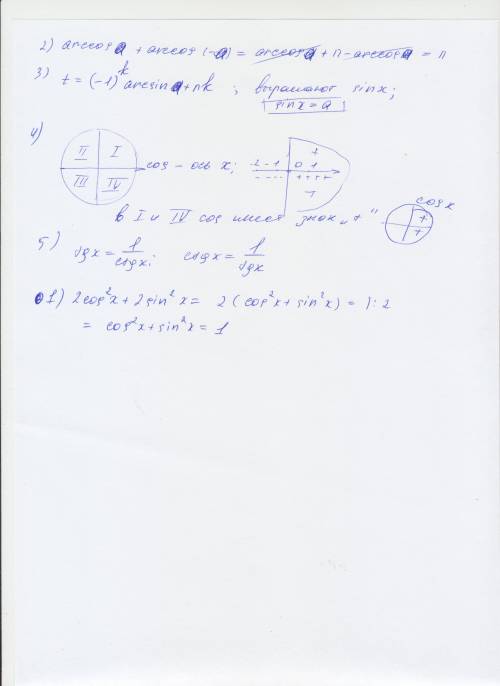 2) arccos a + arccos (-a) = arccos a + π - arccos a = π
3) t = (-1)^k arcsin a + πk ; выражают sin x;
sin x = a
4)
II I
III IV
cos - ось x;
-2 -1 0 1
+
- - - - + + + +
в I и IV cos имеет знак „+"
cos x
+
+
5) tgx = 1/ctgx; ctgx = 1/tgx
1) 2cos²x + 2sin²x = 2 (cos²x + sin²x) = ): 2
= cos²x + sin²x = 1